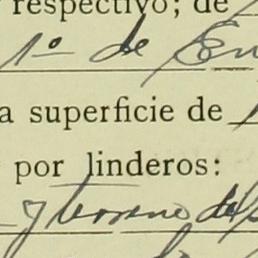 respectivo; de
1º de En
a superficie de
por linderos:
y terreno de